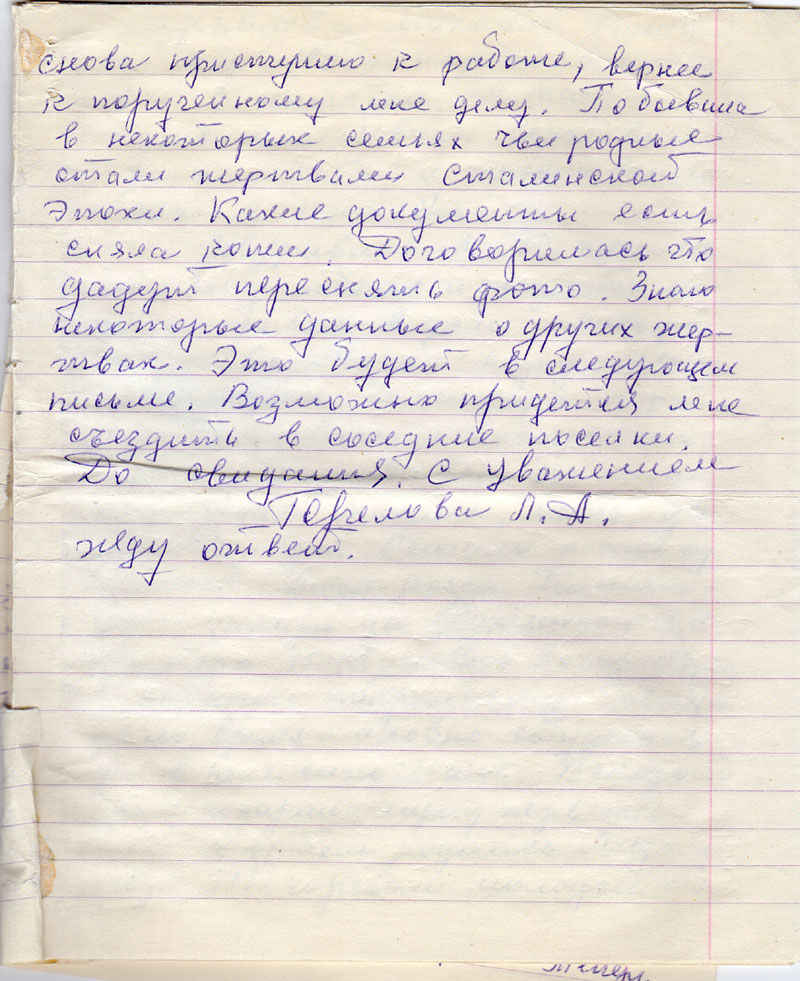 снова приступлю к работе, вернее
к порученному мне делу. Побывала
в некоторых семьях чьи родные
стали жертвами Сталинской
Эпохи. Какие документы есть
сняла копии. Договорилась что
дадут переснять фото. Знаю
некоторые данные о других жер-
твах. Это будет в следующем
письме. Возможно придется мне
съездить в соседние поселки.
До свидания. С уважением
Л. А.
жду ответ.